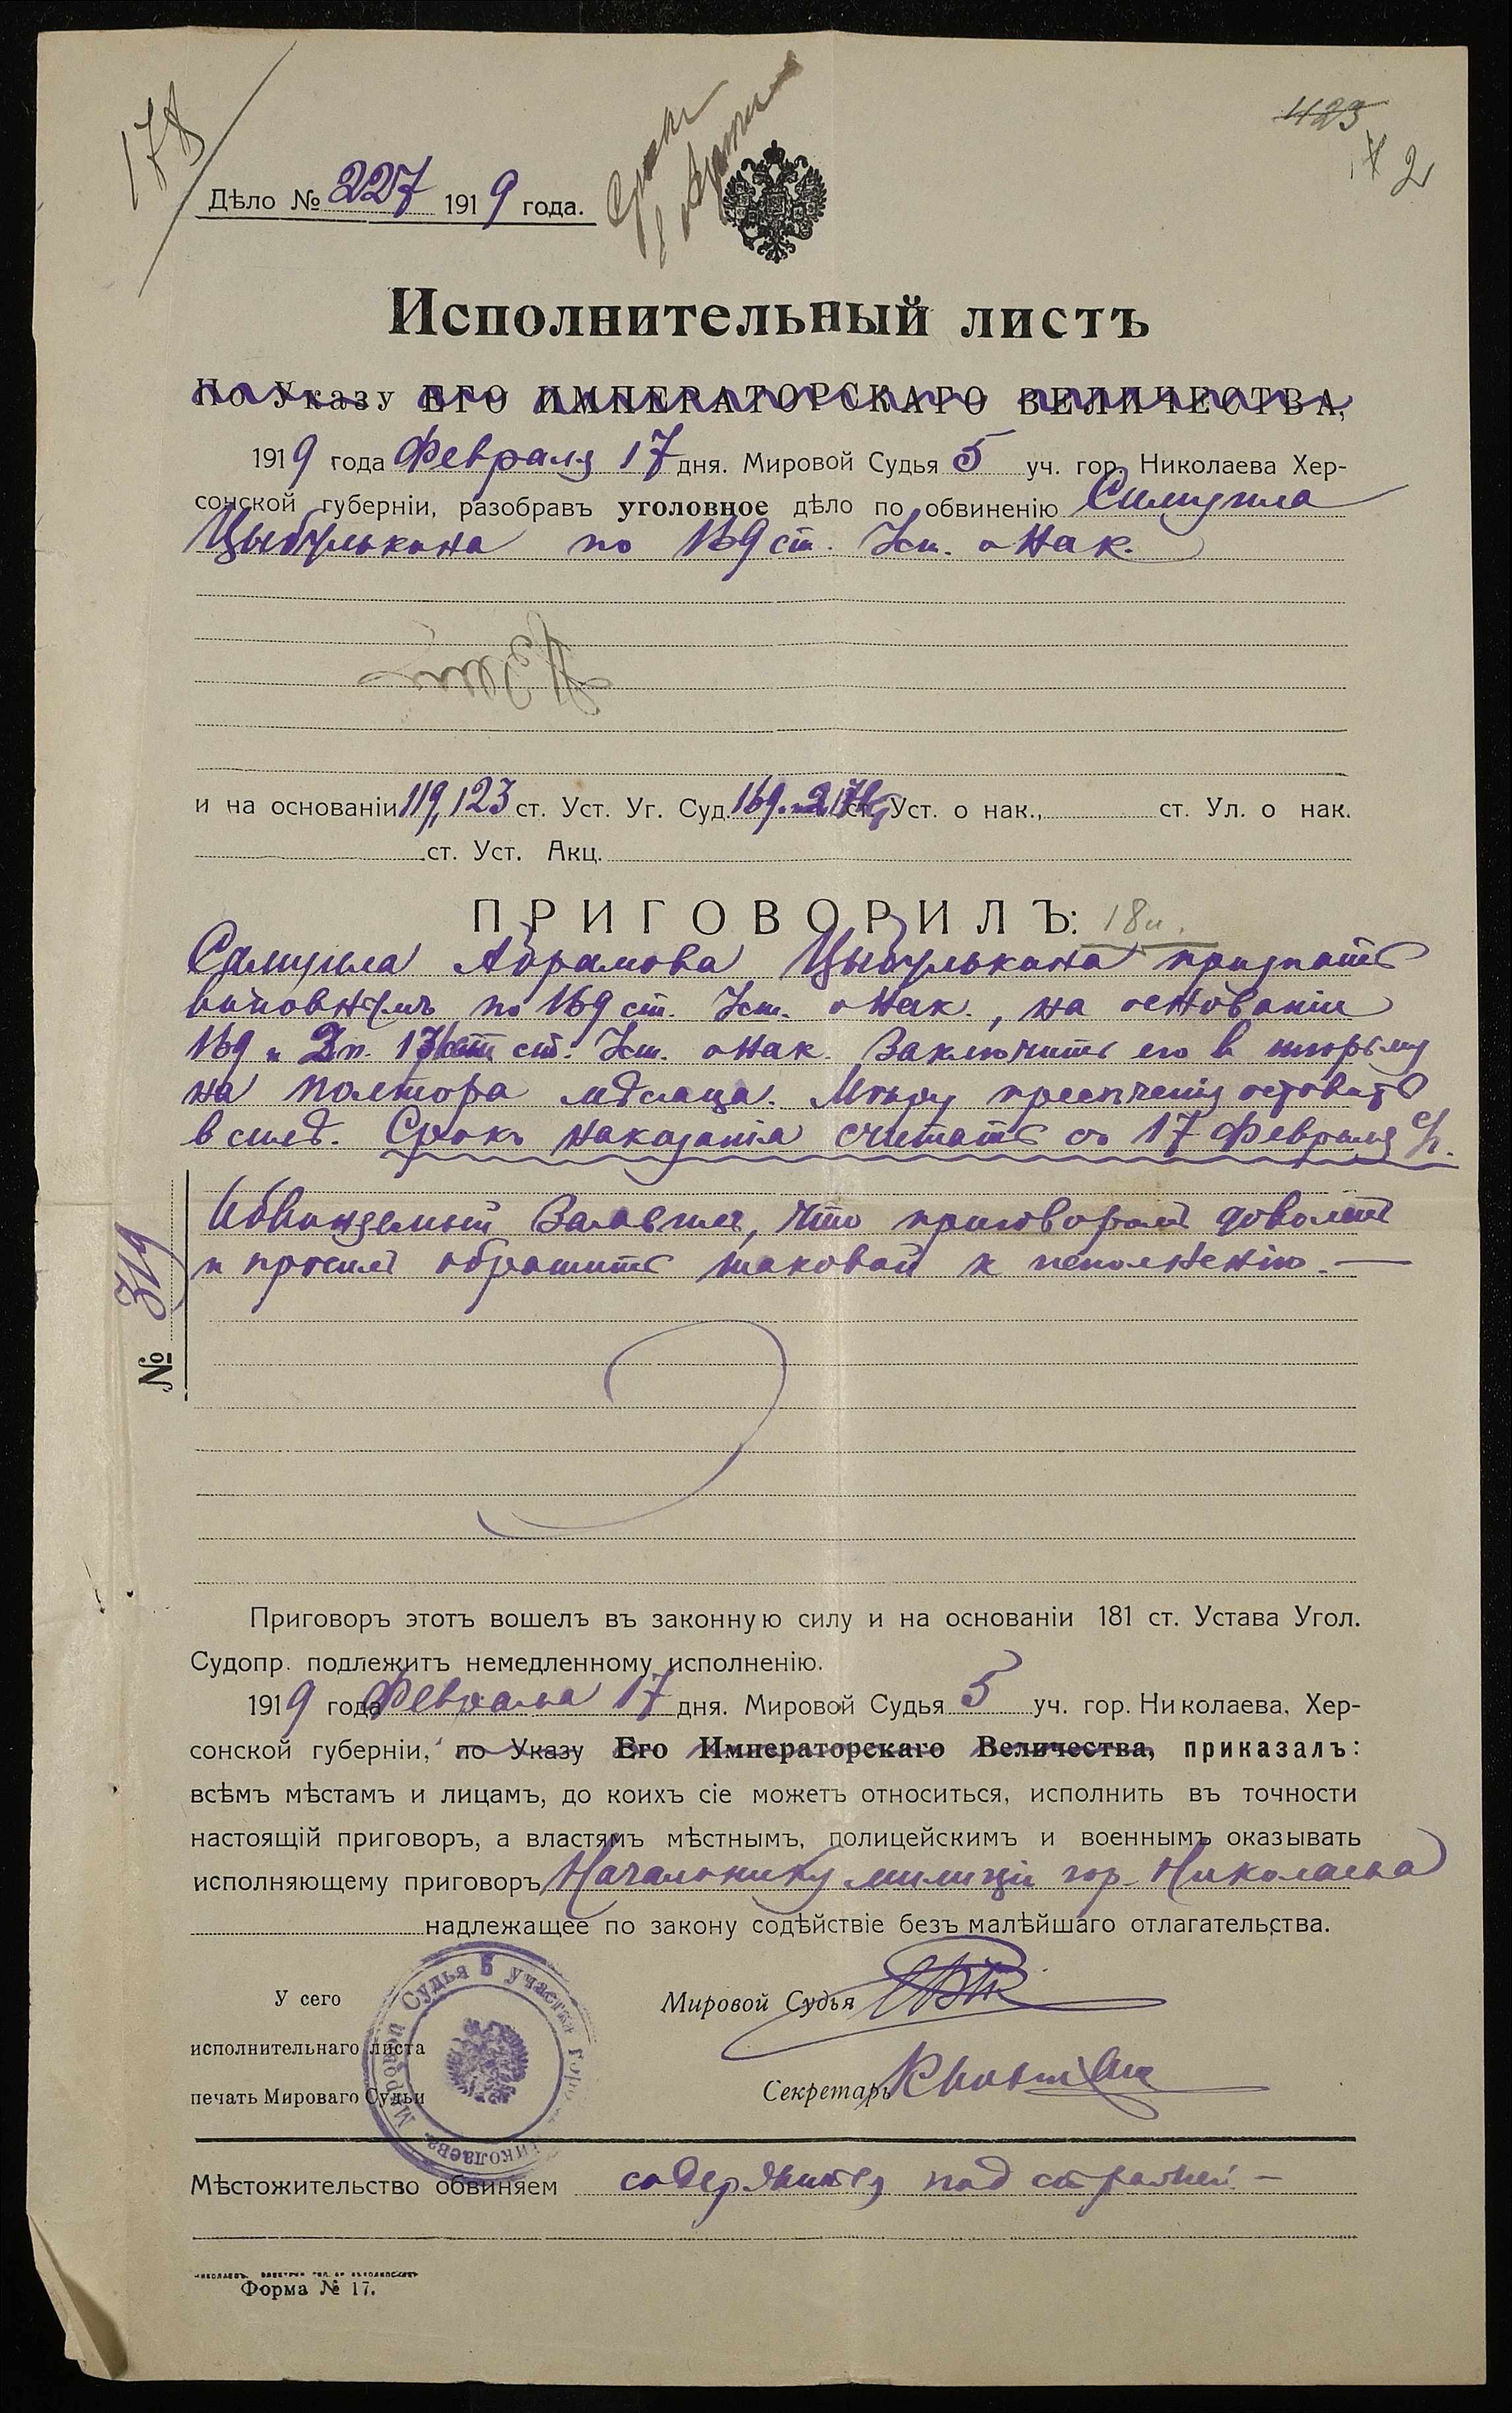 178
423
2
Дѣло № 227 1919 года.
Исполнительный листъ
По Указу ЕГО ИМПЕРАТОРСКАГО ВЕЛИЧЕСТВА,
1919 года Февраля 17 дня. Мировой Судья 5 уч. гор. Николаева Хер-
сонской губерніи, разобравъ уголовное дѣло по обвиненію Самуила
Цыбулькина по 169 ст. Уст. о Нак.
и на основаніи 119, 123 ст. Уст. Уг. Суд. 169 и 2 ст. Уст. о нак., ст. Ул. о нак.
ст. Уст. Акц.
ПРИГОВОРИЛЪ:
Самуила Абрамова Цыбулькина признать
виновнымъ по 169 ст. Уст. о Нак., на основаніи
169 и 2 п. ст. Уст. о Нак. заключить его в тюрьму
на полтора мѣсяца. Мѣру пресеченія оставить
в силѣ. Срокъ наказанія считать съ 17 Февраля с/г.
Обвиняемый заявилъ, что приговоромъ доволенъ
и проситъ обратить таковой к исполненію. —
№ 319
Приговоръ этотъ вошелъ въ законную силу и на основаніи 181 ст. Устава Угол.
Судопр. подлежитъ немедленному исполненію.
1919 года Февраля 17 дня. Мировой Судья 5 уч. гор. Николаева, Хер-
сонской губерніи, по Указу Его Императорскаго Величества, приказалъ:
всѣмъ мѣстамъ и лицамъ, до коихъ сіе можетъ относиться, исполнить въ точности
настоящій приговоръ, а властямъ мѣстнымъ, полицейскимъ и военнымъ оказывать
исполняющему приговоръ Начальнику милиціи гор. Николаева
надлежащее по закону содѣйствіе безъ малѣйшаго отлагательства.
У сего
исполнительнаго листа
печать Мироваго Судьи
Мировой Судья 5 участка Николаева
Мировой Судья
Секретарь
Мѣстожительство обвиняем содержится под стражей —
Форма № 17.